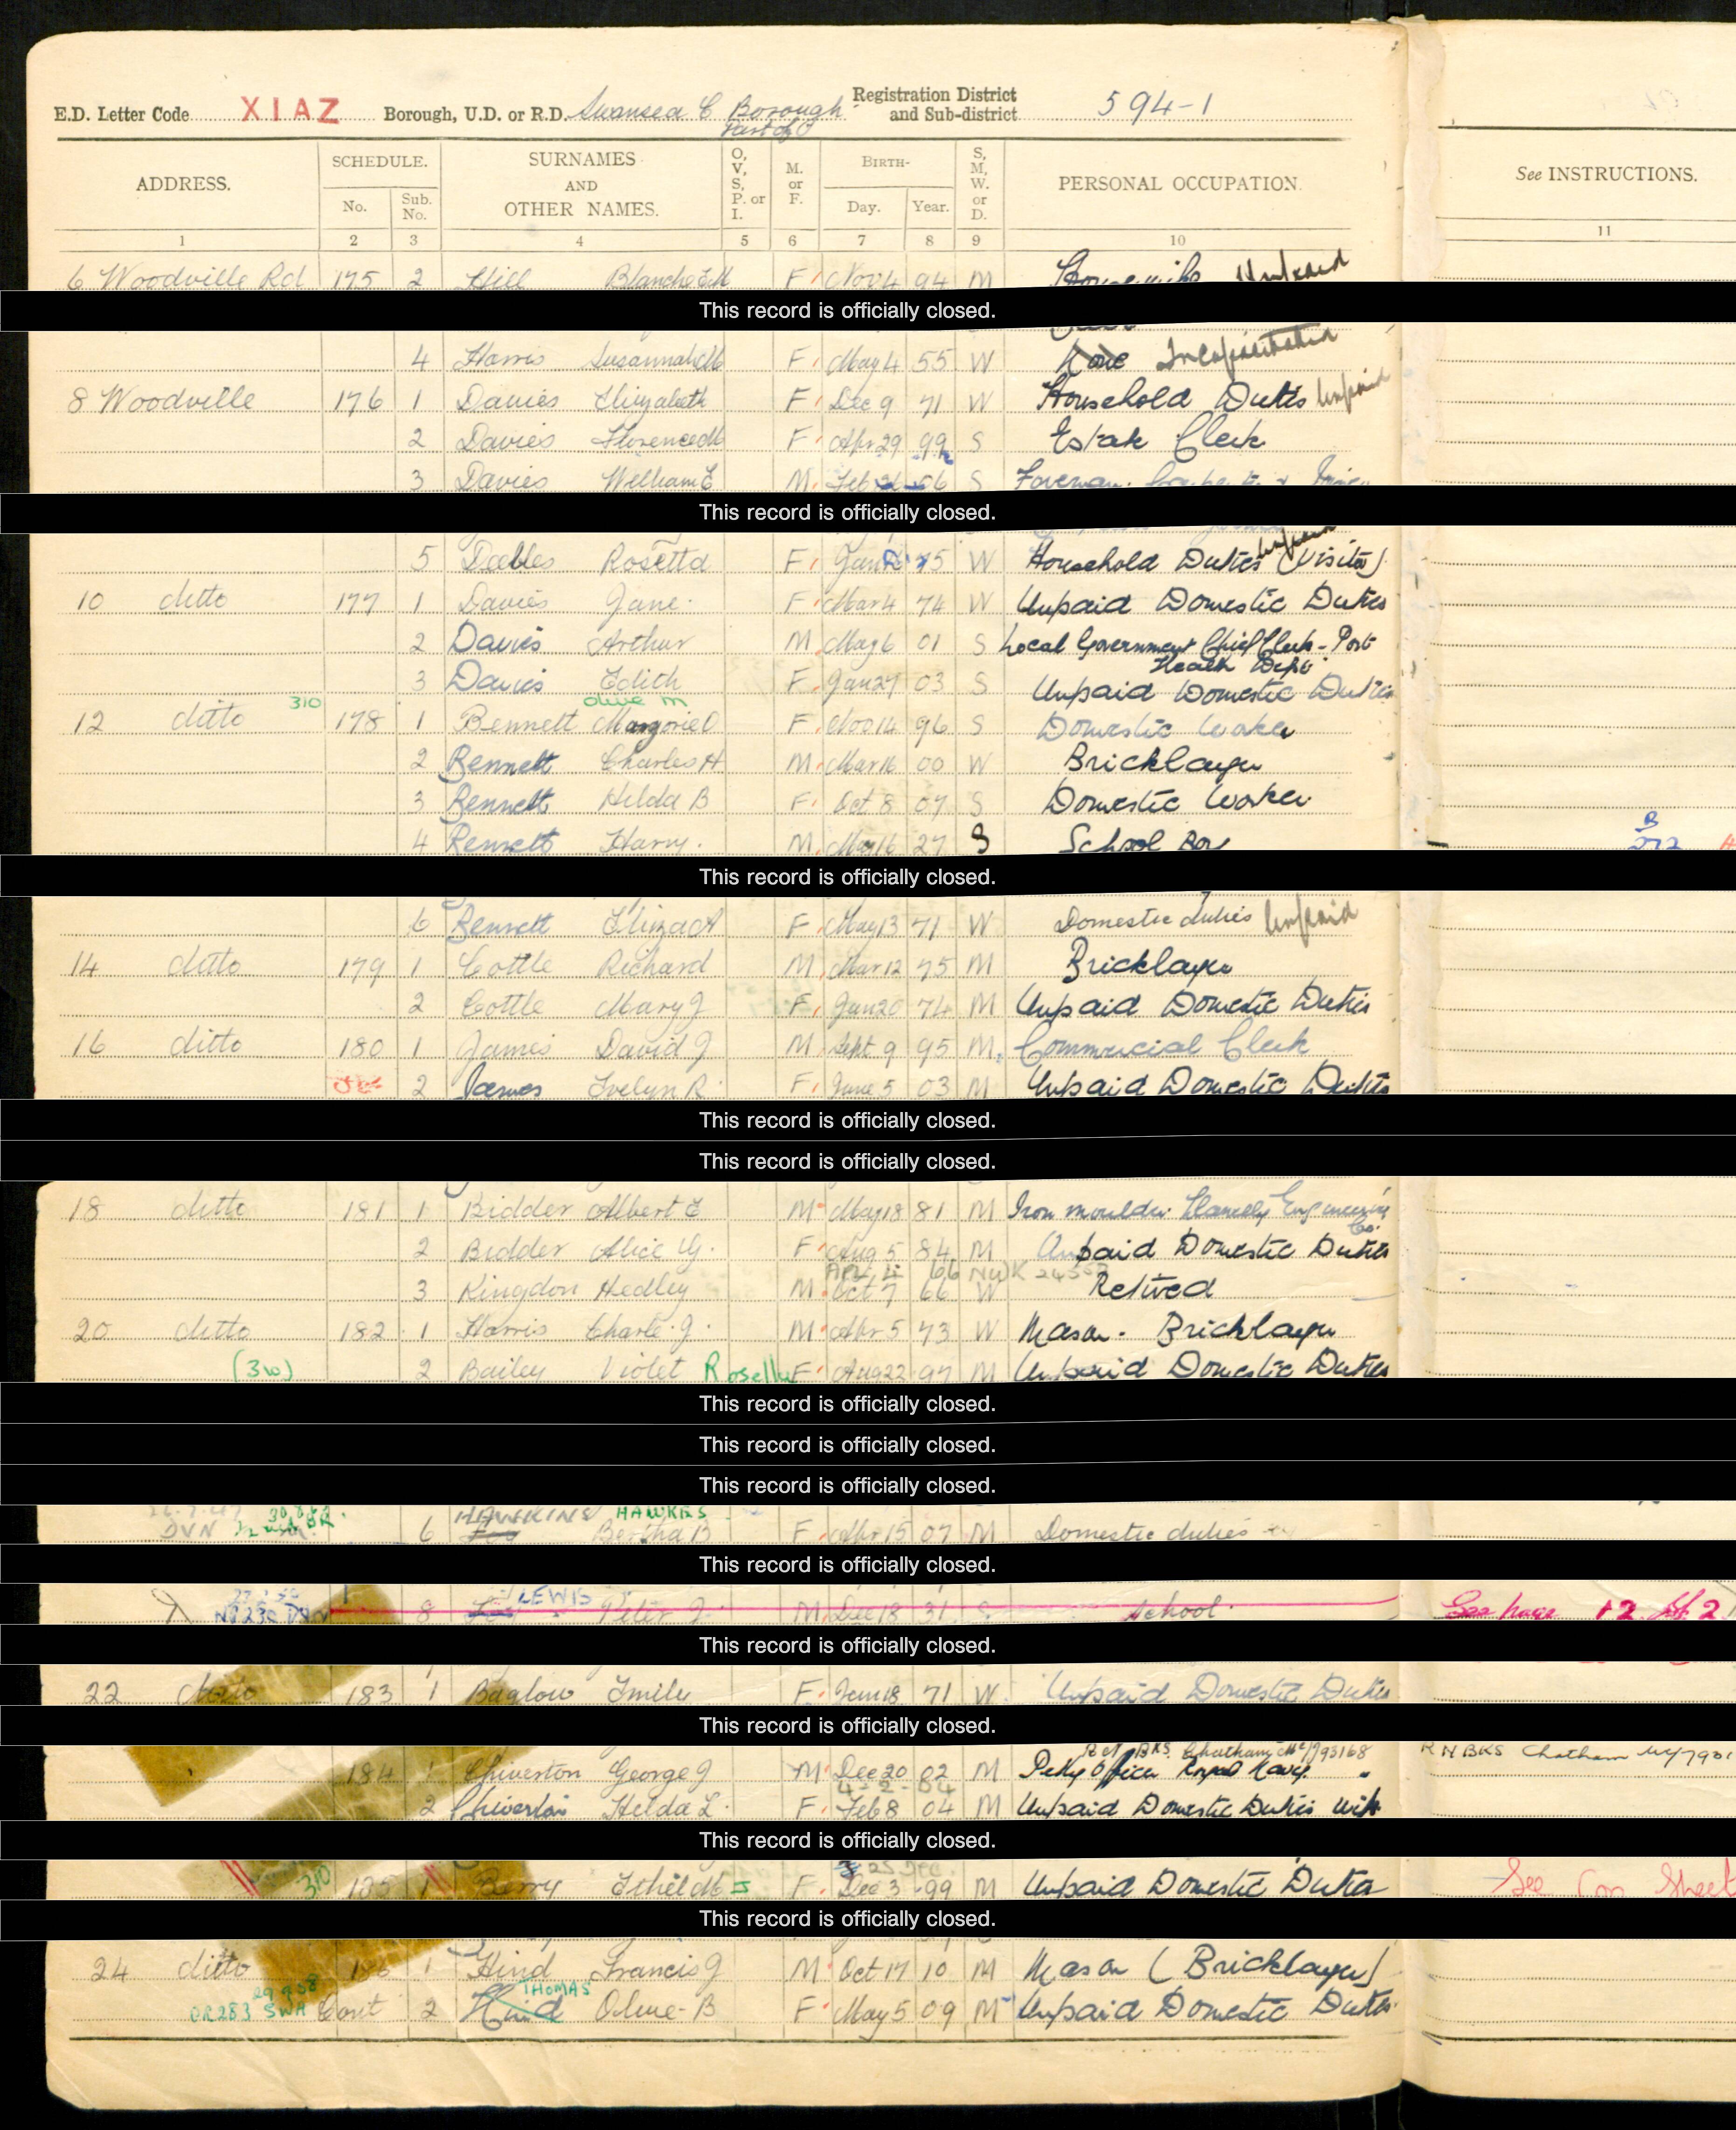 E.D. Letter Code XIAZ Borough, U.D. or R.D. Swansea C Borough Registration District and Sub-district 594-1
Part of
ADDRESS. SCHEDULE. No. Sub. No. SURNAMES AND OTHER NAMES. O, V, S, P. or I. M. or F. BIRTH- Day. Year. S, M, W. or D. PERSONAL OCCUPATION. See INSTRUCTIONS.
1 2 3 4 5 6 7 8 9 10 11
6 Woodville Rd 175 2 Hill Blanche F Nov 4 94 M Housewife Unpaid
This record is officially closed.
4 Harris Susannah M F May 4 55 W None Incapacitated
8 Woodville 176 1 Davies Elizabeth F Dec 9 71 W Household Duties Unpaid
2 Davies Florence M F Apr 29 99 S Estate Clerk
3 Davies William E M Feb 06 S Foreman
This record is officially closed.
5 Deebles Rosetta F Jan 75 W Household Duties (Visitor) Unpaid
10 ditto 177 1 Davies Jane F Mar 4 74 W Unpaid Domestic Duties
2 Davies Arthur M May 6 01 S Local Government Chief Clerk - Port
Health Dept
3 Davies Edith F Jan 27 03 S Unpaid Domestic Duties
310 Olive M
12 ditto 178 1 Bennett Marjorie O F Nov 14 96 S Domestic Worker
2 Bennett Charles H M Mar 16 00 W Bricklayer
3 Bennett Hilda B F Oct 8 07 S Domestic Worker
4 Bennett Harry M May 16 27 S School Boy
This record is officially closed.
6 Bennett Eliza A F May 13 71 W Domestic duties Unpaid
14 ditto 179 1 Cottle Richard M Mar 12 75 M Bricklayer
2 Cottle Mary J F Jan 20 74 M Unpaid Domestic Duties
16 ditto 180 1 James David J M Sept 9 95 M Commercial Clerk
2 James Evelyn R F June 5 03 M Unpaid Domestic Duties
This record is officially closed.
This record is officially closed.
18 ditto 181 1 Bidder Albert E M May 18 81 M Iron moulder Llanelly Engineering Co.
2 Bidder Alice G. F Aug 5 84 M Unpaid Domestic Duties
APL 4 66 NWK
3 Kingdon Hedley M Oct 7 66 W Retired
20 ditto 182 1 Harris Charle. J. M Apr 5 73 W Mason - Bricklayer
(3w) 2 Bailey Violet Rosella F Aug 22 97 M Unpaid Domestic Duties
This record is officially closed.
This record is officially closed.
This record is officially closed.
HAWKINS HAWKES
DVN 6 Bertha B F Apr 15 07 M Domestic duties
This record is officially closed.
LEWIS
8 Peter J. M Dec 18 31 S School See page 12
This record is officially closed.
22 ditto 183 1 Baglow Emily F Jan 18 71 W Unpaid Domestic Duties
This record is officially closed.
BKS. Chatham RN BKS Chatham
184 1 Chiverton George J M Dec 20 02 M Petty Officer Royal Navy
4-2-04
2 Chiverton Hilda L. F Feb 8 04 M Unpaid Domestic Duties Wife
This record is officially closed.
25 Dec.
310 185 1 Berry Ethel M J F Dec 3 99 M Unpaid Domestic Duties See Con Sheet
This record is officially closed.
24 ditto 186 1 Hind Francis J M Oct 17 10 M Mason (Bricklayer)
29 9 58 THOMAS
OR283 SWA Cont 2 Hind Olive B F May 5 09 M Unpaid Domestic Duties